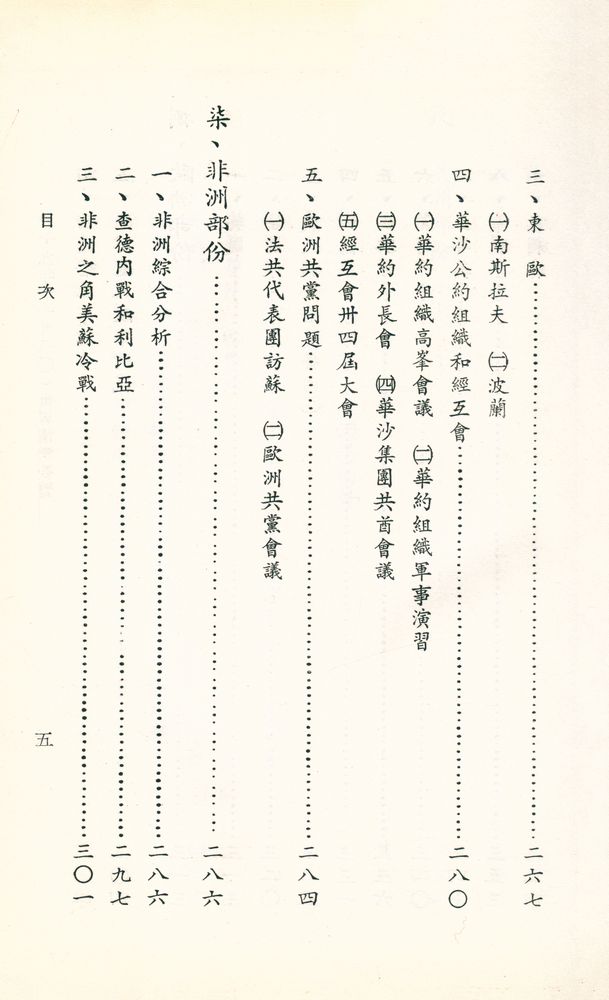 三、東　歐……二六七
㈠南斯拉夫　㈡波蘭
四、華沙公約組織和經互會……二八〇
㈠華約組織高峯會議　㈡華約組織軍事演習
㈢華約外長會　㈣華沙集團共酋會議
㈤經互會卅四屆大會
五、歐洲共黨問題……二八四
㈠法共代表團訪蘇　㈡歐洲共黨會議
柒、非洲部份……二八六
一、非洲綜合分析……二八六
二、查德內戰和利比亞……二九七
三、非洲之角美蘇冷戰……三〇一
目　次　五